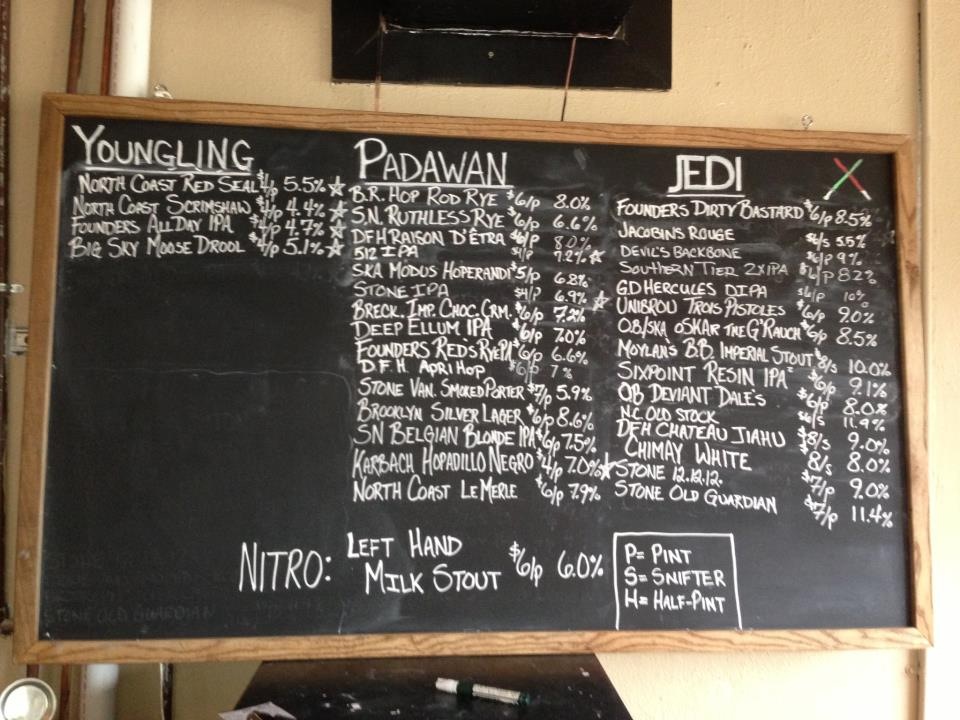 YOUNGLING
NORTH COAST RED SEAL $4/P 5.5% ☆
NORTH COAST SCRIMSHAW $4/P 4.4% ☆
FOUNDERS ALL DAY IPA $4/P 4.7% ☆
BIG SKY MOOSE DROOL $4/P 5.1% ☆
PADAWAN
B.R. HOP ROD RYE $6/P 8.0%
S.N. RUTHLESS RYE $6/P 6.6%
DFH RAISON D'ÊTRA $6/P 8.0%
512 IPA $4/P 7.2% ☆
SKA MODUS HOPERANDI $5/P 6.8%
STONE IPA $4/P 6.9% ☆
BRECK. IMP. CHOC. CRM. $6/P 7.2%
DEEP ELLUM IPA $6/P 7.0%
FOUNDERS RED'S RYEPA $6/P 6.6%
D.F.H. APRIHOP $6/P 7%
STONE VAN. SMOKED PORTER $7/P 5.9%
BROOKLYN SILVER LAGER $6/P 8.6%
SN BELGIAN BLONDE IPA $6/P 7.5%
KARBACH HOPADILLO NEGRO $4/P 7.0% ☆
NORTH COAST LE MERLE $6/P 7.9%
JEDI
FOUNDERS DIRTY BASTARD $6/P 8.5%
JACOBINS ROUGE $6/S 5.5%
DEVIL'S BACKBONE $6/P 9%
SOUTHERN TIER 2XIPA $6/P 8.2%
G.D HERCULES DIPA $6/P 10%
UNIBROU TROIS PISTOLES $6/P 9.0%
O.B/SKA OSKAR THE G'RAUCH $6/P 8.5%
MOYLAN'S B.B. IMPERIAL STOUT $8/S 10.0%
SIXPOINT RESIN IPA² $6/P 9.1%
OB DEVIANT DALE'S $6/P 8.0%
N.C. OLD STOCK $6/S 11.9%
DFH CHATEAU JIAHU $8/S 9.0%
CHIMAY WHITE 8/S 8.0%
STONE 12.12.12. $7/P 9.0%
STONE OLD GUARDIAN $7/P 11.4%
NITRO: LEFT HAND
MILK STOUT $6/P 6.0%
P= PINT
S= SNIFTER
H= HALF-PINT
STONE OLD GUARDIAN